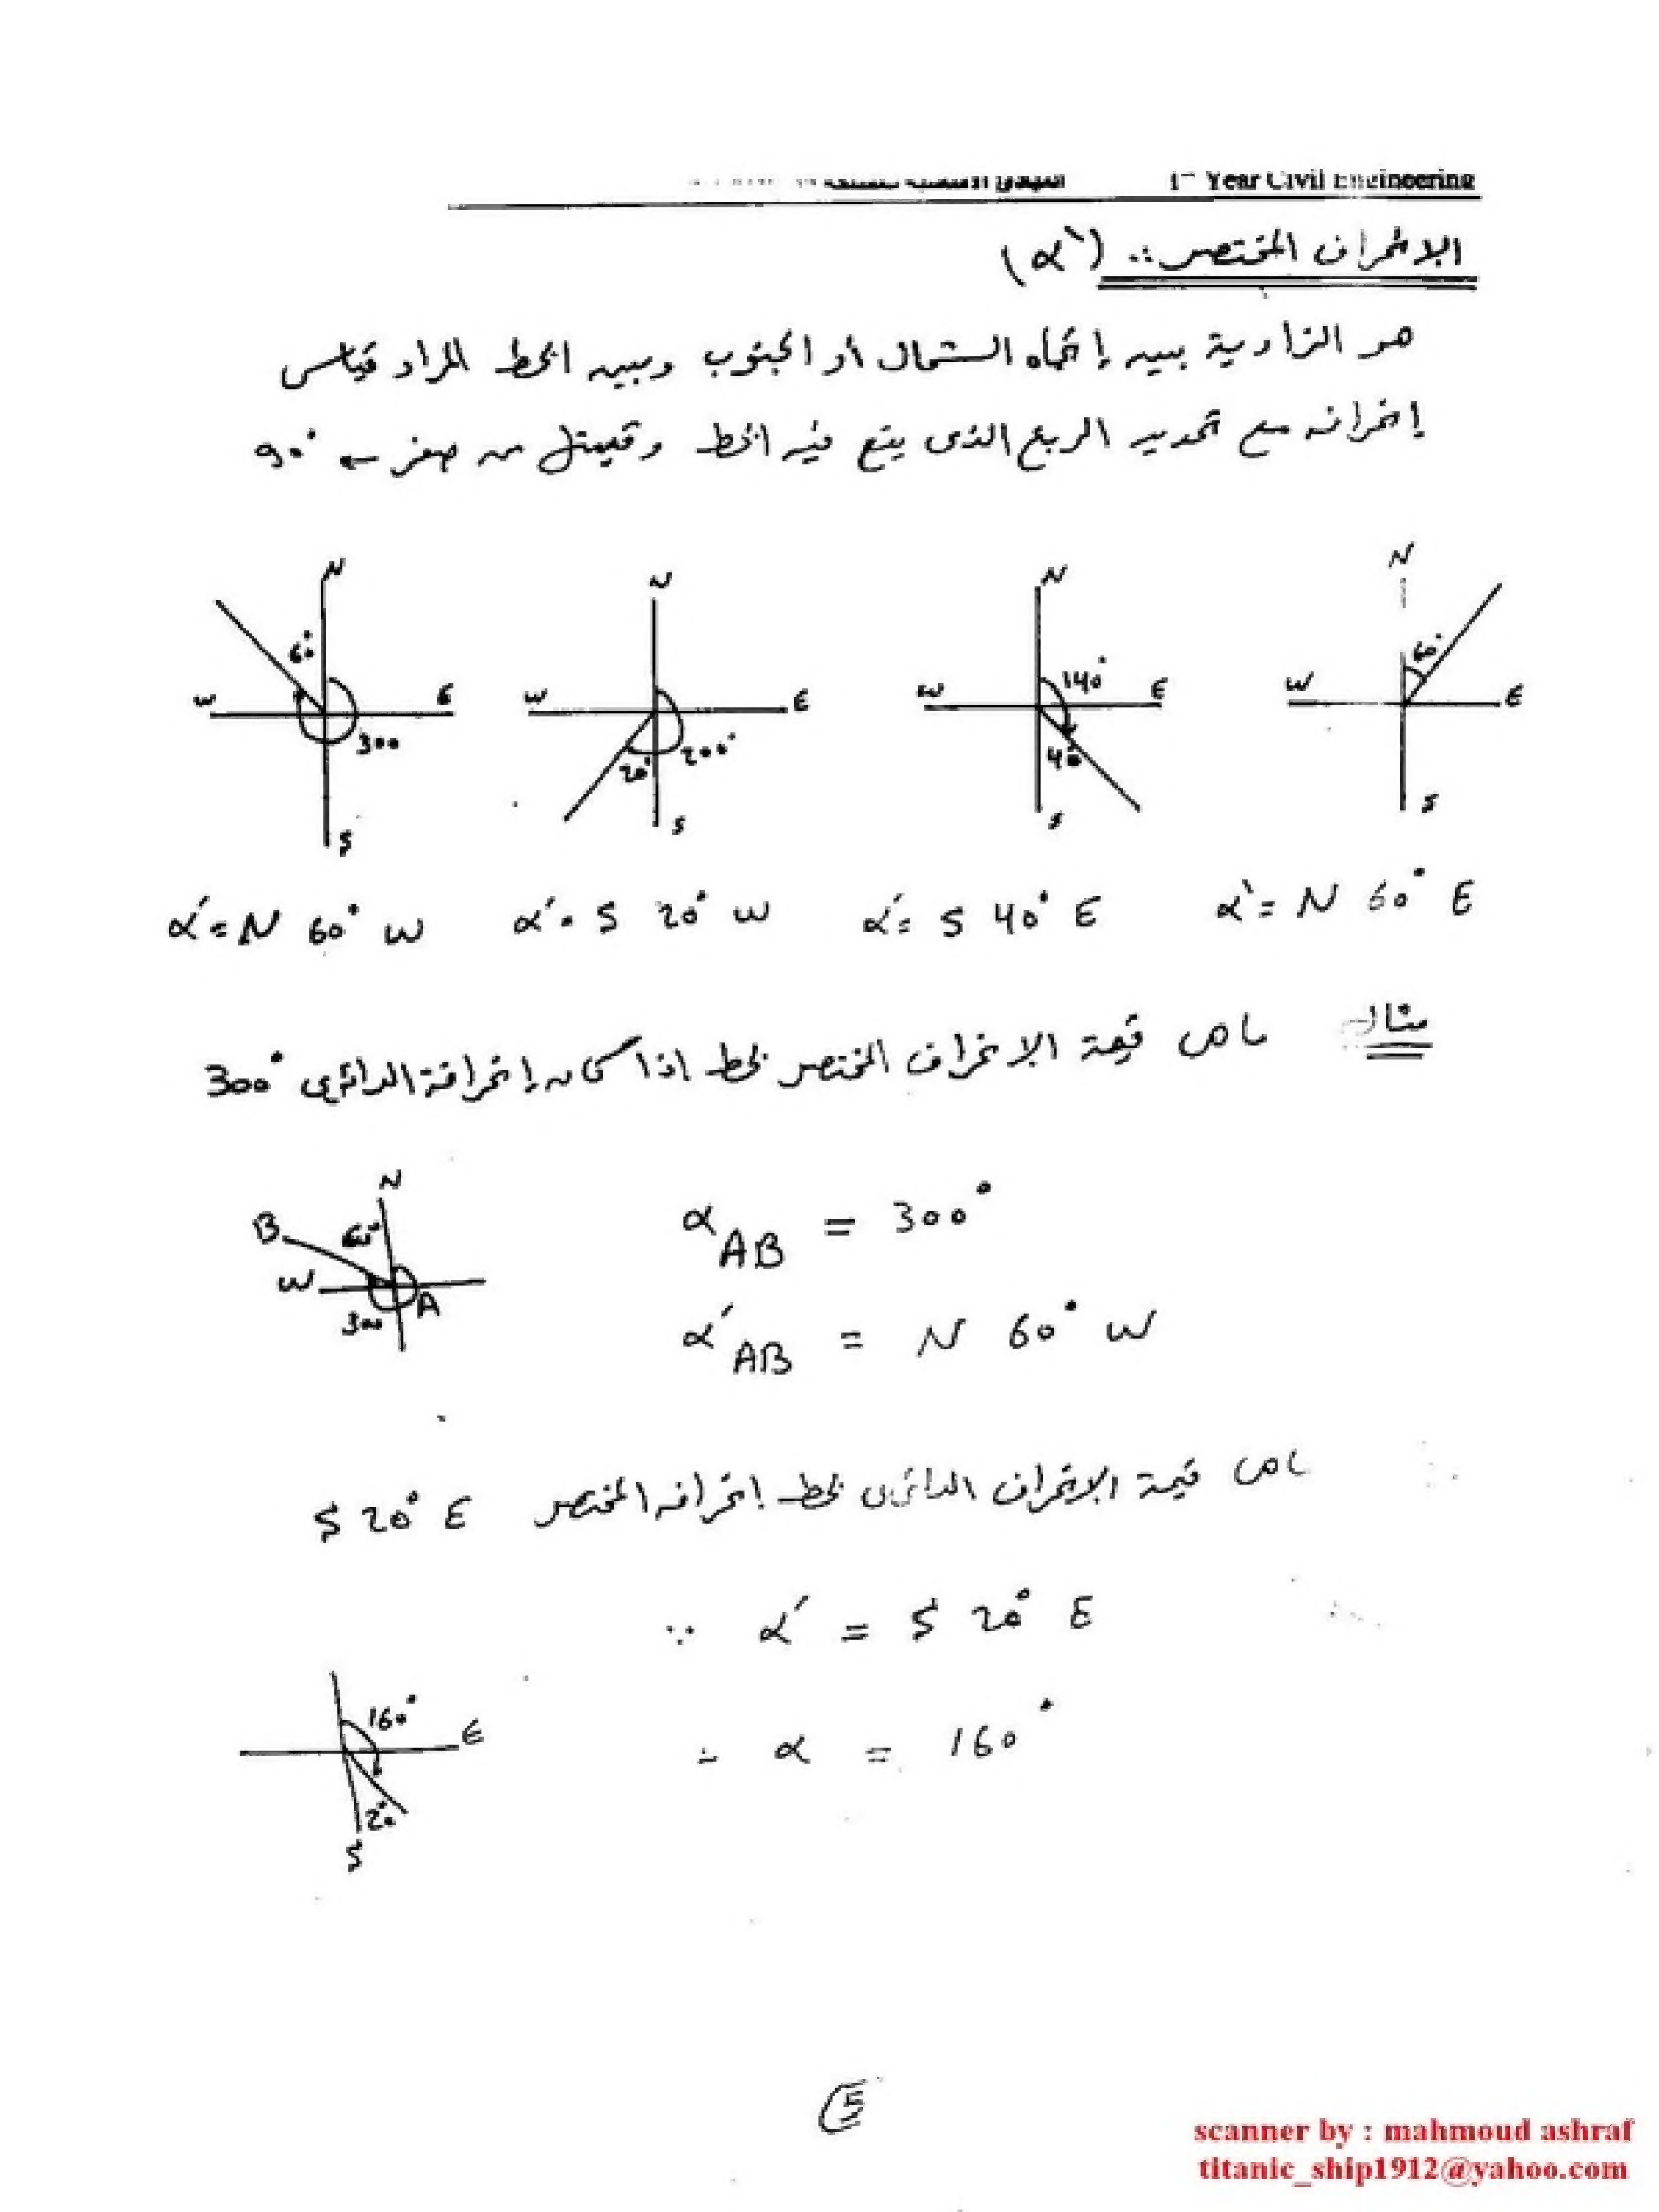 1st Year Civil Engineering
الإنحراف المختصر :- (α')
هو الزاوية بين إتجاه الشمال أو الجنوب وبين الخط المراد قياس
إنحرافه مع تحديد الربع الذى يقع فيه الخط وقيمته من صفر ← 90°
N N N N
60° W E 300 S
W E 20° 200° S
W 140° E 40° S
60° W E S
α' = N 60° W α' = S 20° W α' = S 40° E α' = N 60° E
مثال ما هى قيمة الانحراف المختصر لخط اذا كان إنحرافة الدائرى 300°
N
B 60°
W 300 A
α AB = 300°
α' AB = N 60° W
ما هى قيمة الانحراف الدائرى لخط إنحرافه المختصر S 20° E
∵ α' = S 20° E
160° E
∴ α = 160°
20°
S
5
scanner by : mahmoud ashraf
titanic_ship1912@yahoo.com